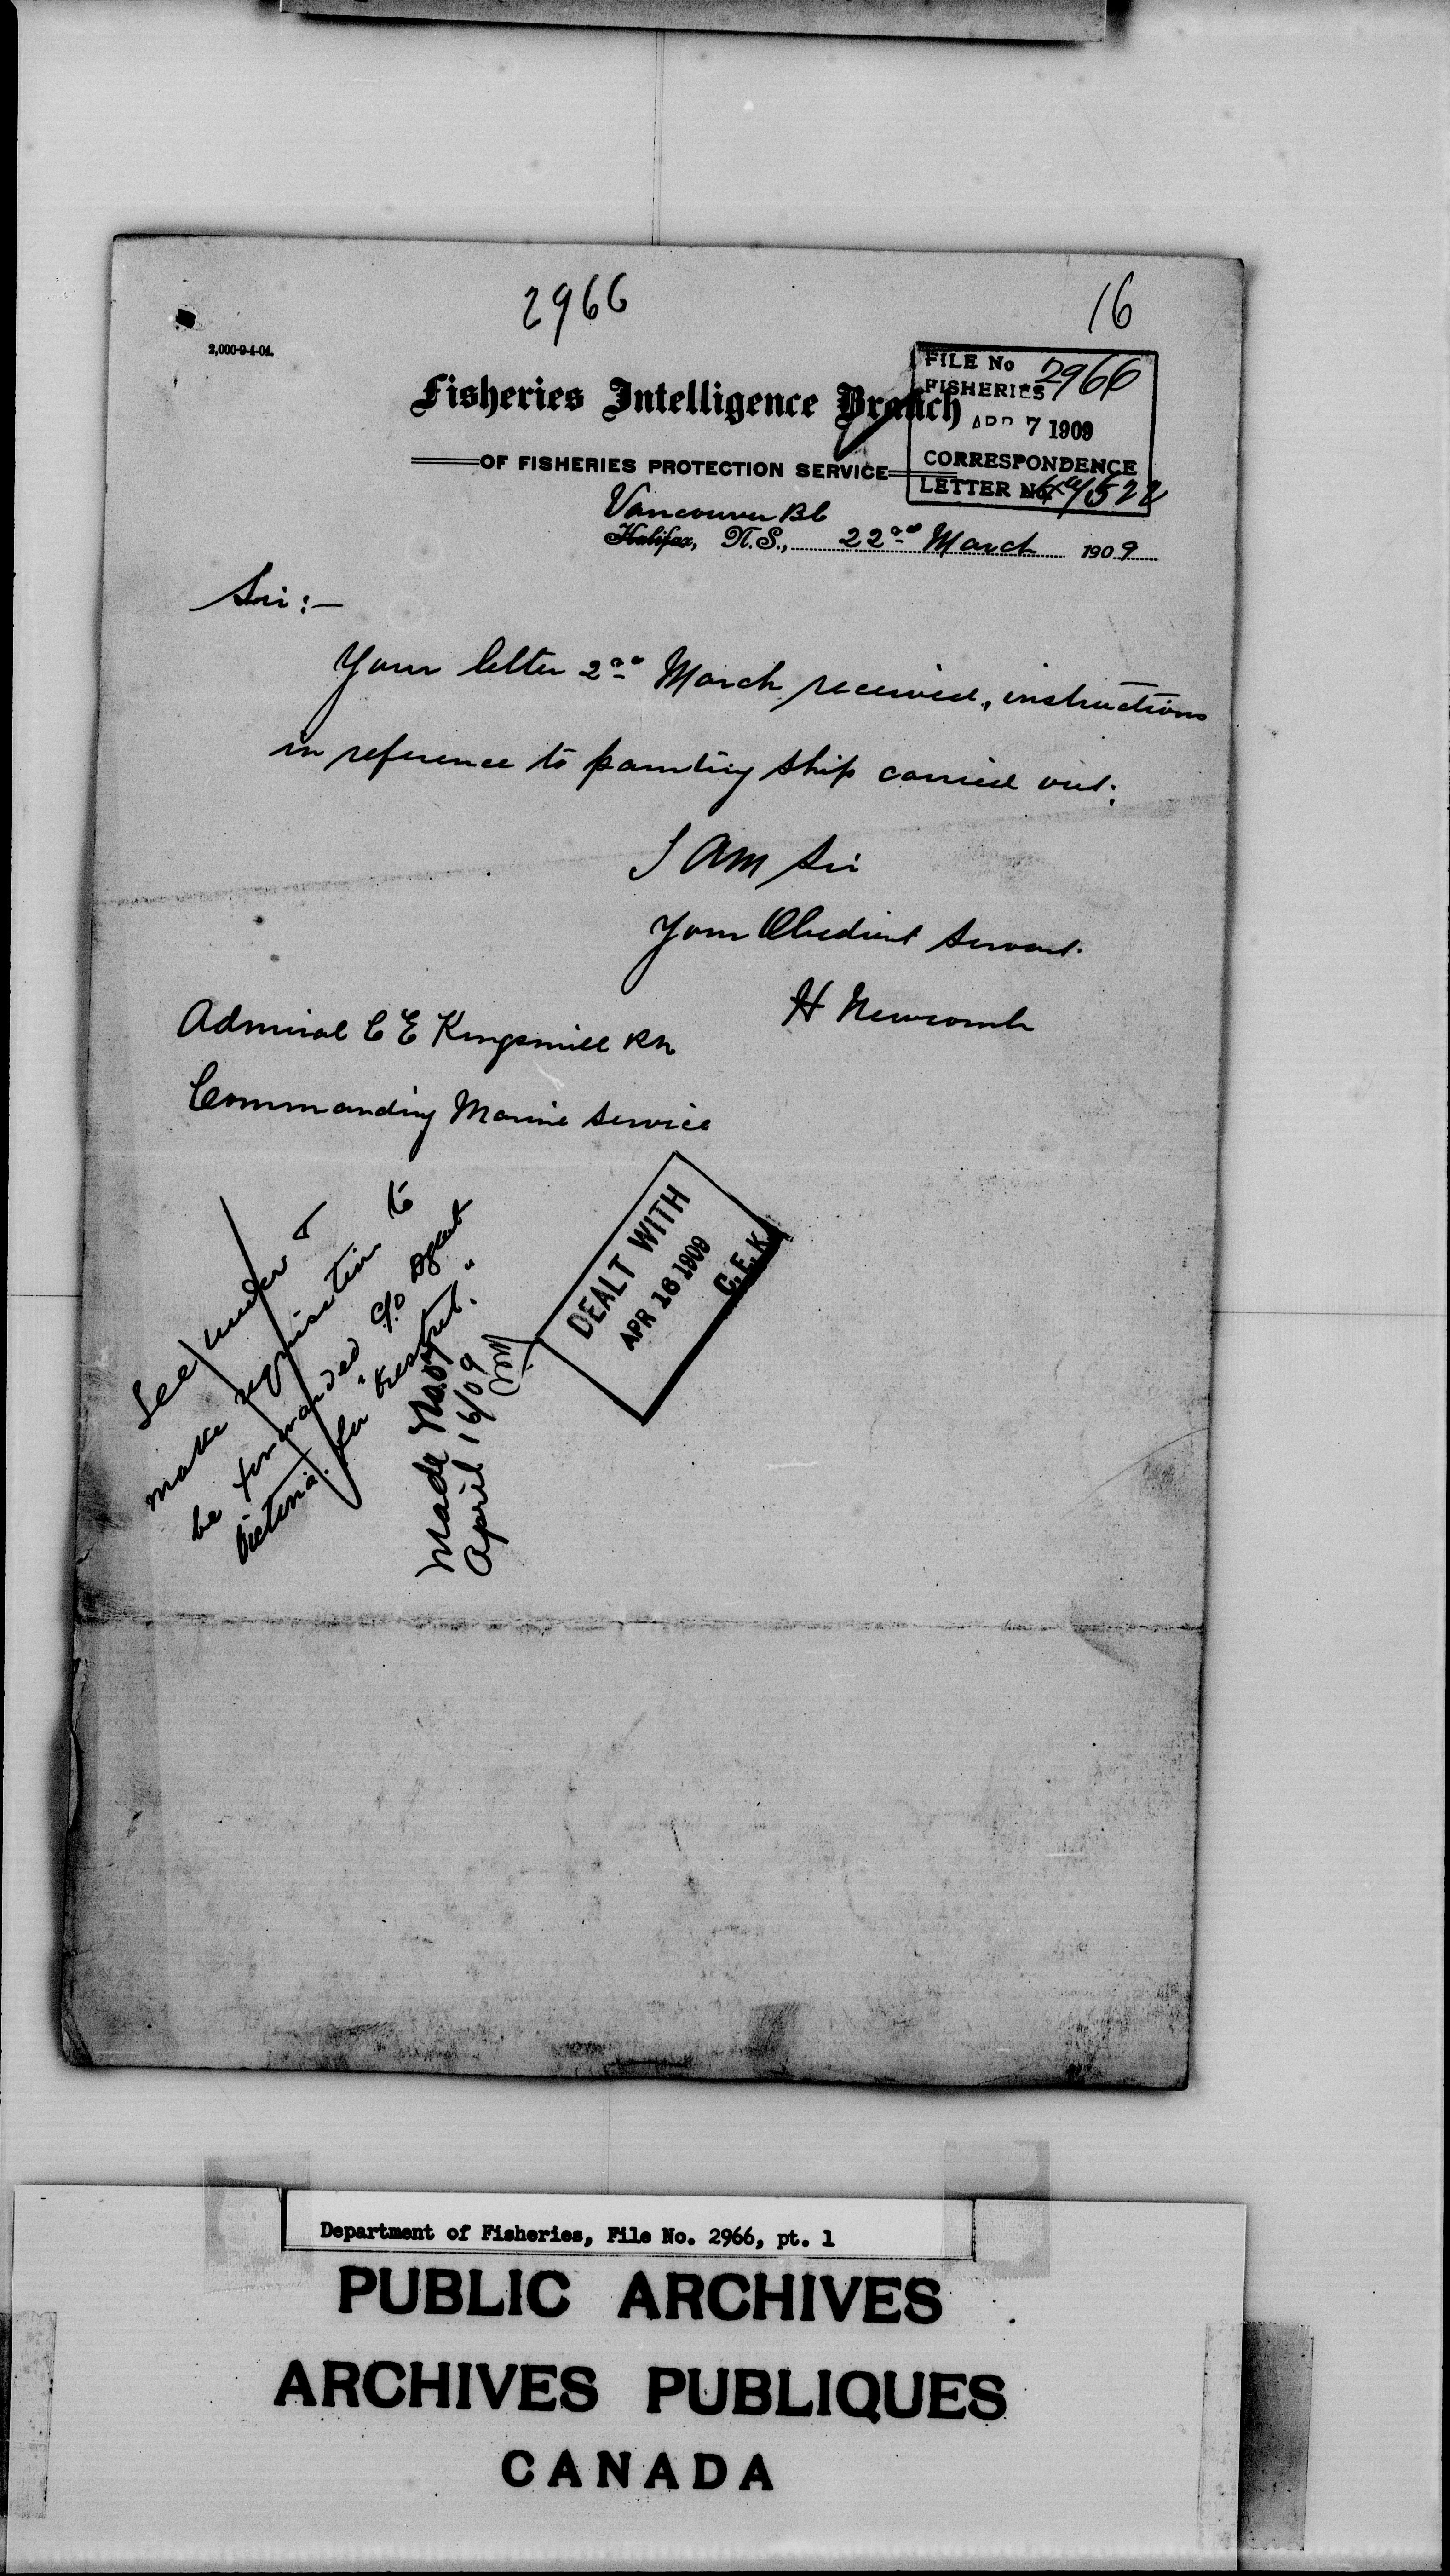 2966
16
2,000-9-4-04.
FILE No 2966
FISHERIES
APR 7 1909
CORRESPONDENCE
LETTER No.
Fisheries Intelligence Branch
OF FISHERIES PROTECTION SERVICE
Vancouver BC
Halifax, N.S., 22nd March 1909
Sir:—
Your letter 2nd March received, instructions
in reference to painting ship carried out;
I am Sir
Your Obedient Servant.
H Newcomb
Admiral C E Kingsmill RN
Commanding Marine Service
See under &
make requisition to
be forwarded c/o Agent
Victoria. for "Kestrel."
Made No. 07
April 16/09
DEALT WITH
APR 16 1909
C.E.K.
Department of Fisheries, File No. 2966, pt. 1
PUBLIC ARCHIVES
ARCHIVES PUBLIQUES
CANADA